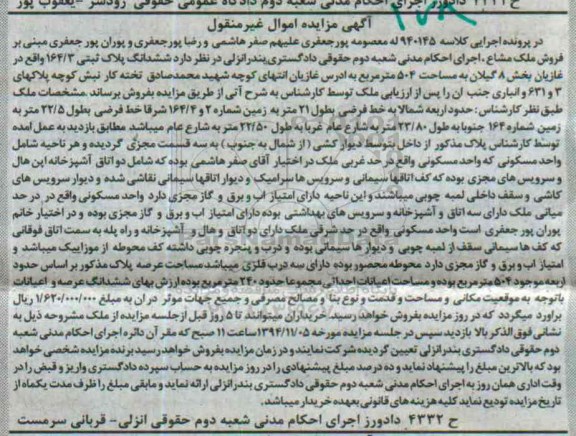 آگهی مزایده اموال غیرمنقول
در پرونده اجرایی کلاسه ۹۴۰۱۴۵ له معصومه پورجعفری علیهم سفر هاشمی و رضا پورجعفری و پوران پور جعفری مبنی بر
فروش ملک مشاع، اجرای احکام مدنی شعبه دوم حقوقی دادگستری بندرانزلی در نظر دارد ششدانگ پلاک ثبتی ۱۶۴/۳ واقع در
غازیان بخش ۸ گیلان به مساحت ۵۰۴ مترمربع به ادرس غازیان انتهای کوچه شهید محمدصادق تخته کار نبش کوچه پلاکهای
۳ و ۶۳۱ و انباری جنب ان را پس از ارزیابی ملک توسط کارشناس به شرح آتی از طریق مزایده بفروش برساند. مشخصات ملک
طبق نظر کارشناس: حدود اربعه شمالا به خط فرضی بطول ۲۱ متر به زمین شماره ۲ و ۱۶۴/۴ شرقا خط فرضی بطول ۲۲/۵ متر به
زمین شماره ۱۶۴ جنوبا به طول ۲۳/۸۰ متر به شارع عام غربا به طول ۲۲/۵۰ متر به شارع عام میباشد. مطابق بازدید به عمل آمده
توسط کارشناس پلاک مذکور از داخل بتوسط دیوار کشی (از شمال به جنوب) به سه قسمت مجزی گردیده و هر ناحیه شامل
واحد مسکونی که واحد مسکونی واقع در حد غربی ملک در اختیار آقای صفر هاشمی بوده که شامل دو اتاق آشپزخانه این هال
و سرویس های مجزی بوده که کف اتاقها سیمانی و سرویس ها سرامیک و دیوار اتاقها سیمانی نقاشی شده و دیوار سرویس های
کاشی و سقف داخلی لمبه چوبی میباشند و این ناحیه دارای امتیاز اب و برق و گاز مجزی دارد واحد مسکونی واقع در در حد
میانی ملک دارای سه اتاق و آشپزخانه و سرویس های بهداشتی بوده دارای امتیاز اب و برق و گاز مجزی بوده و در اختیار خانم
پوران پور جعفری است واحد مسکونی واقع در حد شرقی ملک دارای دو اتاق و هال و آشپزخانه و راه پله به سمت اتاق فوقانی
که کف ها سیمانی سقف از لمبه چوبی و دیوار ها سیمانی بوده و درب و پنجره چوبی داشته کف محوطه از موزاییک میباشد و
امتیاز اب و برق و گاز مجزی دارد محوطه محصور بوده دارای سه درب فلزی میباشد. مساحت عرصه پلاک مذکور بر اساس حدود
اربعه موجود ۵۰۴ مترمربع بوده و مساحت اعیانات احداثی مجموعا حدود ۲۴۰ مترمربع بوده ارزش بهای ششدانگ عرصه و اعیانات
باتوجه به موقعیت مکانی و مساحت و قدمت و نوع بنا و مصالح مصرفی و جمیع جهات موثر در ان به مبلغ ۱/۶۲۰/۰۰۰/۰۰۰ ریال
براورد میگردد که در روز مزایده بفروش خواهد رسید. خریداران میتوانند تا ۵ روز قبل از جلسه مزایده از ملک مشروحه ذیل به
نشانی فوق الذکر بالا بازدید سپس در جلسه مزایده مورخه ۱۳۹۴/۱۱/۰۵ ساعت ۱۱ صبح که مقر آن دائره اجرای احکام مدنی شعبه
دوم حقوقی دادگستری بندرانزلی تعیین گردیده شرکت نمایند و در زمان مزایده بفروش خواهد رسید برنده مزایده شخصی خواهد
بود که بالاترین مبلغ را پیشنهاد نماید و ده درصد مبلغ پیشنهادی را در روز مزایده به حساب سپرده دادگستری واریز و قبض را در
وقت اداری همان روز به اجرای احکام مدنی شعبه دوم حقوقی دادگستری بندرانزلی ارائه نماید و مابقی مبلغ را ظرف مدت یکماه از
تاریخ مزایده تودیع نماید کلیه هزینه های قانونی بعهده خریدار میباشد.
ح ۴۳۳۲ دادورز اجرای احکام مدنی شعبه دوم حقوقی انزلی - قربانی سرمست